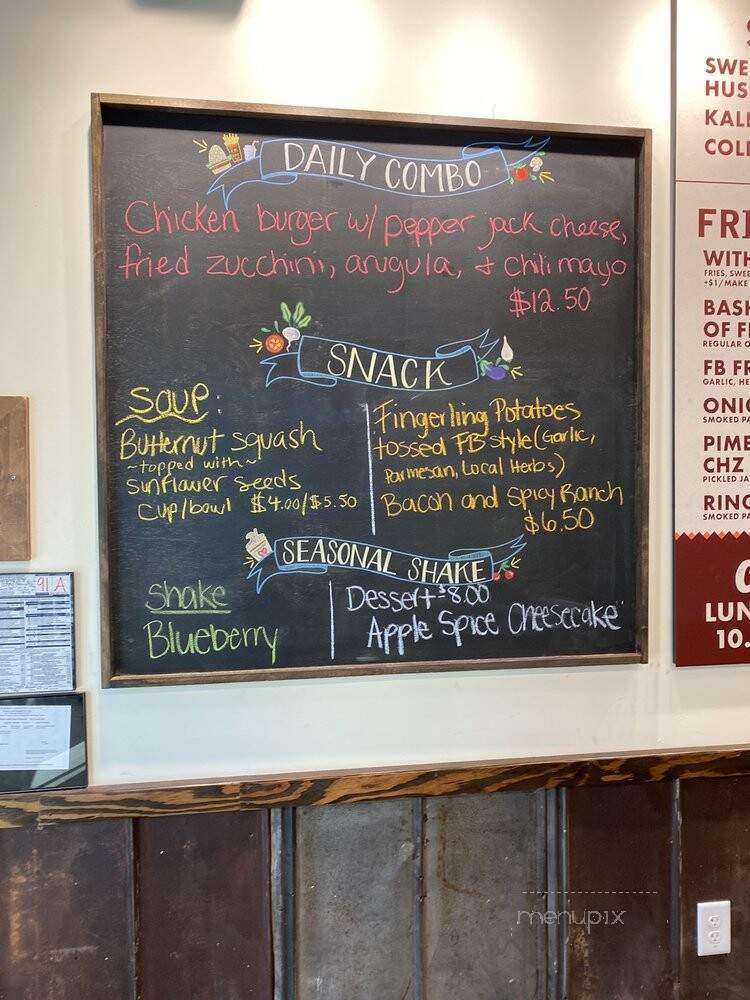 DAILY COMBO
Chicken burger w/ pepper jack cheese,
fried zucchini, arugula, + chili mayo
$12.50
SNACK
SOUP:
Butternut squash
~topped with~
sunflower seeds
cup/bowl $4.00/$5.50
Fingerling Potatoes
tossed FB style (Garlic,
Parmesan, Local Herbs)
Bacon and Spicy Ranch
$6.50
SEASONAL SHAKE
Shake
Blueberry
Dessert - $8.00
Apple Spice Cheesecake
91 A
SWE
HUS
KAL
COL
FRI
WITH
FRIES, SWEE
+$1/MAKE
BASK
OF F
REGULAR O
FB FR
GARLIC, HE
ONIO
SMOKED PA
PIME
CHZ
PICKLED JA
RING
SMOKED PA
LUN
10.
menupix